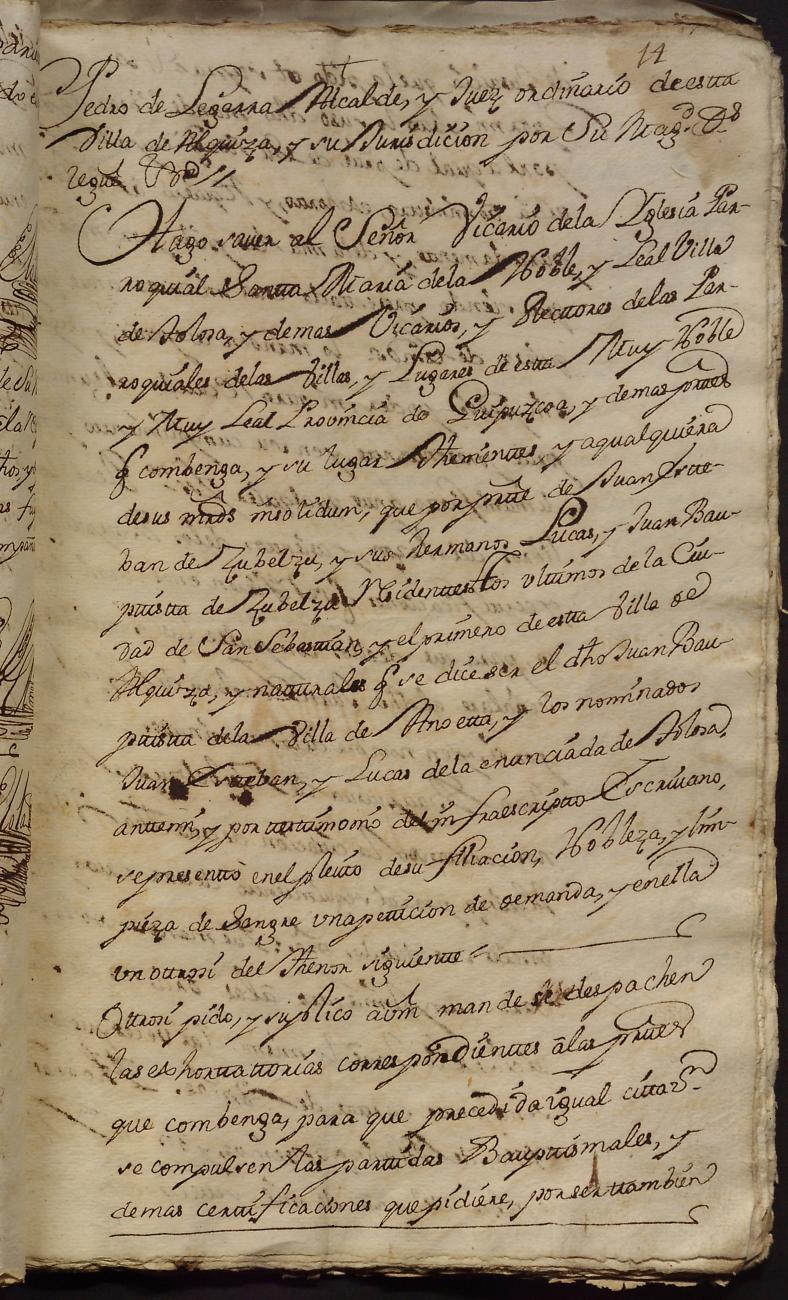 14
Pedro de Legarra Alcalde, y Juez ordinario de esta
Villa de Alquiza, y su Jurisdicion por Su Mag.d
Hago saver al Señor Vicario dela Yglesia Par-
roquial Santa Maria dela Noble, y Leal Villa
de Tolosa, y demas Vicarios, y Rectores delas Par-
roquiales delas Villas, y Lugares de esta Muy Noble
y Muy Leal Provincia de Guipuzcoa, y demas partes
q combenga, y su lugar Thenientes y aqualquiera
desus mrds insolidum, que por parte de Juan Este-
ban de Zubelzu, y sus hermanos Lucas, y Juan Bau-
ptista de Zubelzu Residentes los ultimos de la Ciu-
dad de San Sebastian, y el primero de esta Villa de
Alquiza, y naturales q se dice ser el dho Juan Bau-
ptista dela Villa de Anoetta, y los nominados
Juan Esteban, y Lucas dela enunciada de Tolosa,
antemi, y por testimonio del infraescripto Escrivano,
se presentó enel pleito desu filiacion, Nobleza, y lim-
pieza de Sangre una peticion de demanda, y enella
un ottrosi del Thenor siguiente =
Ottrosi pido, y suplico avm mande se despachen
las exhorttattorias correspondientes alas partes
que combenga, para que precedida igual cittaz.n
se compulsen las partidas Bauptismales, y
demas certtificaciones que pidiere, por ser ttambien